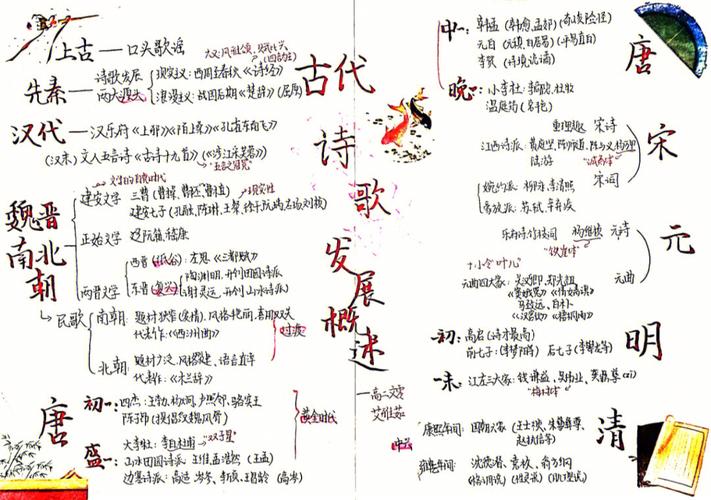 古代诗歌发展概述
上古—口头歌谣
先秦
诗歌发展两大源头
现实主义:西周至春秋《诗经》
浪漫主义:战国后期《楚辞》(屈原)
汉代—汉乐府《上邪》《陌上桑》《孔雀东南飞》
(汉末)文人五言诗《古诗十九首》(《涉江采芙蓉》)
魏晋南北朝
建安文学
三曹(曹操、曹丕、曹植)
建安七子(孔融、陈琳、王粲、徐干、阮瑀、应玚、刘桢)
正始文学
嵇康
两晋文学
西晋
左思《三都赋》
东晋
陶渊明,开创田园诗派
谢灵运,开创山水诗派
民歌
南朝:
风格艳丽,喜用双关
代表作:《西洲曲》
过渡
北朝:
题材广泛,风格豪健,语言直率
代表作:《木兰辞》
唐
初—:四杰:王勃、杨炯、卢照邻、骆宾王
陈子昂(提倡汉魏风骨)
黄金时代
盛—:大李杜:李白、杜甫
"双子星"
山水田园诗派:王维、孟浩然(王孟)
边塞诗派:高适、岑参、李颀、王昌龄(高岑)
唐
中—:韩孟(韩愈、孟郊)(奇崛险怪)
元白(元稹、白居易)(平易直白)
李贺
晚—:小李杜:李商隐、杜牧
温庭筠
宋
宋诗
江西诗派:黄庭坚、陈师道、陈与义、杨万里
陆游
"诚斋体"
宋词
婉约派:柳永、李清照
豪放派:苏轼、辛弃疾
元
杨维桢 元诗
"铁崖体"
元曲
元曲四大家:关汉卿、郑光祖
《窦娥冤》《倩女离魂》
马致远、白朴
《汉宫秋》《梧桐雨》
明
初—:高启(诗才最高)
前七子:(李梦阳等) 后七子:(李攀龙等)
末—:江左三大家:钱谦益、吴伟业、龚鼎孳
"梅村体"
清
康熙年间:国朝六家(王士禛、朱彝尊、赵执信等)
雍乾年间:沈德潜、袁枚、翁方纲
(格调说)(性灵说)(肌理说)